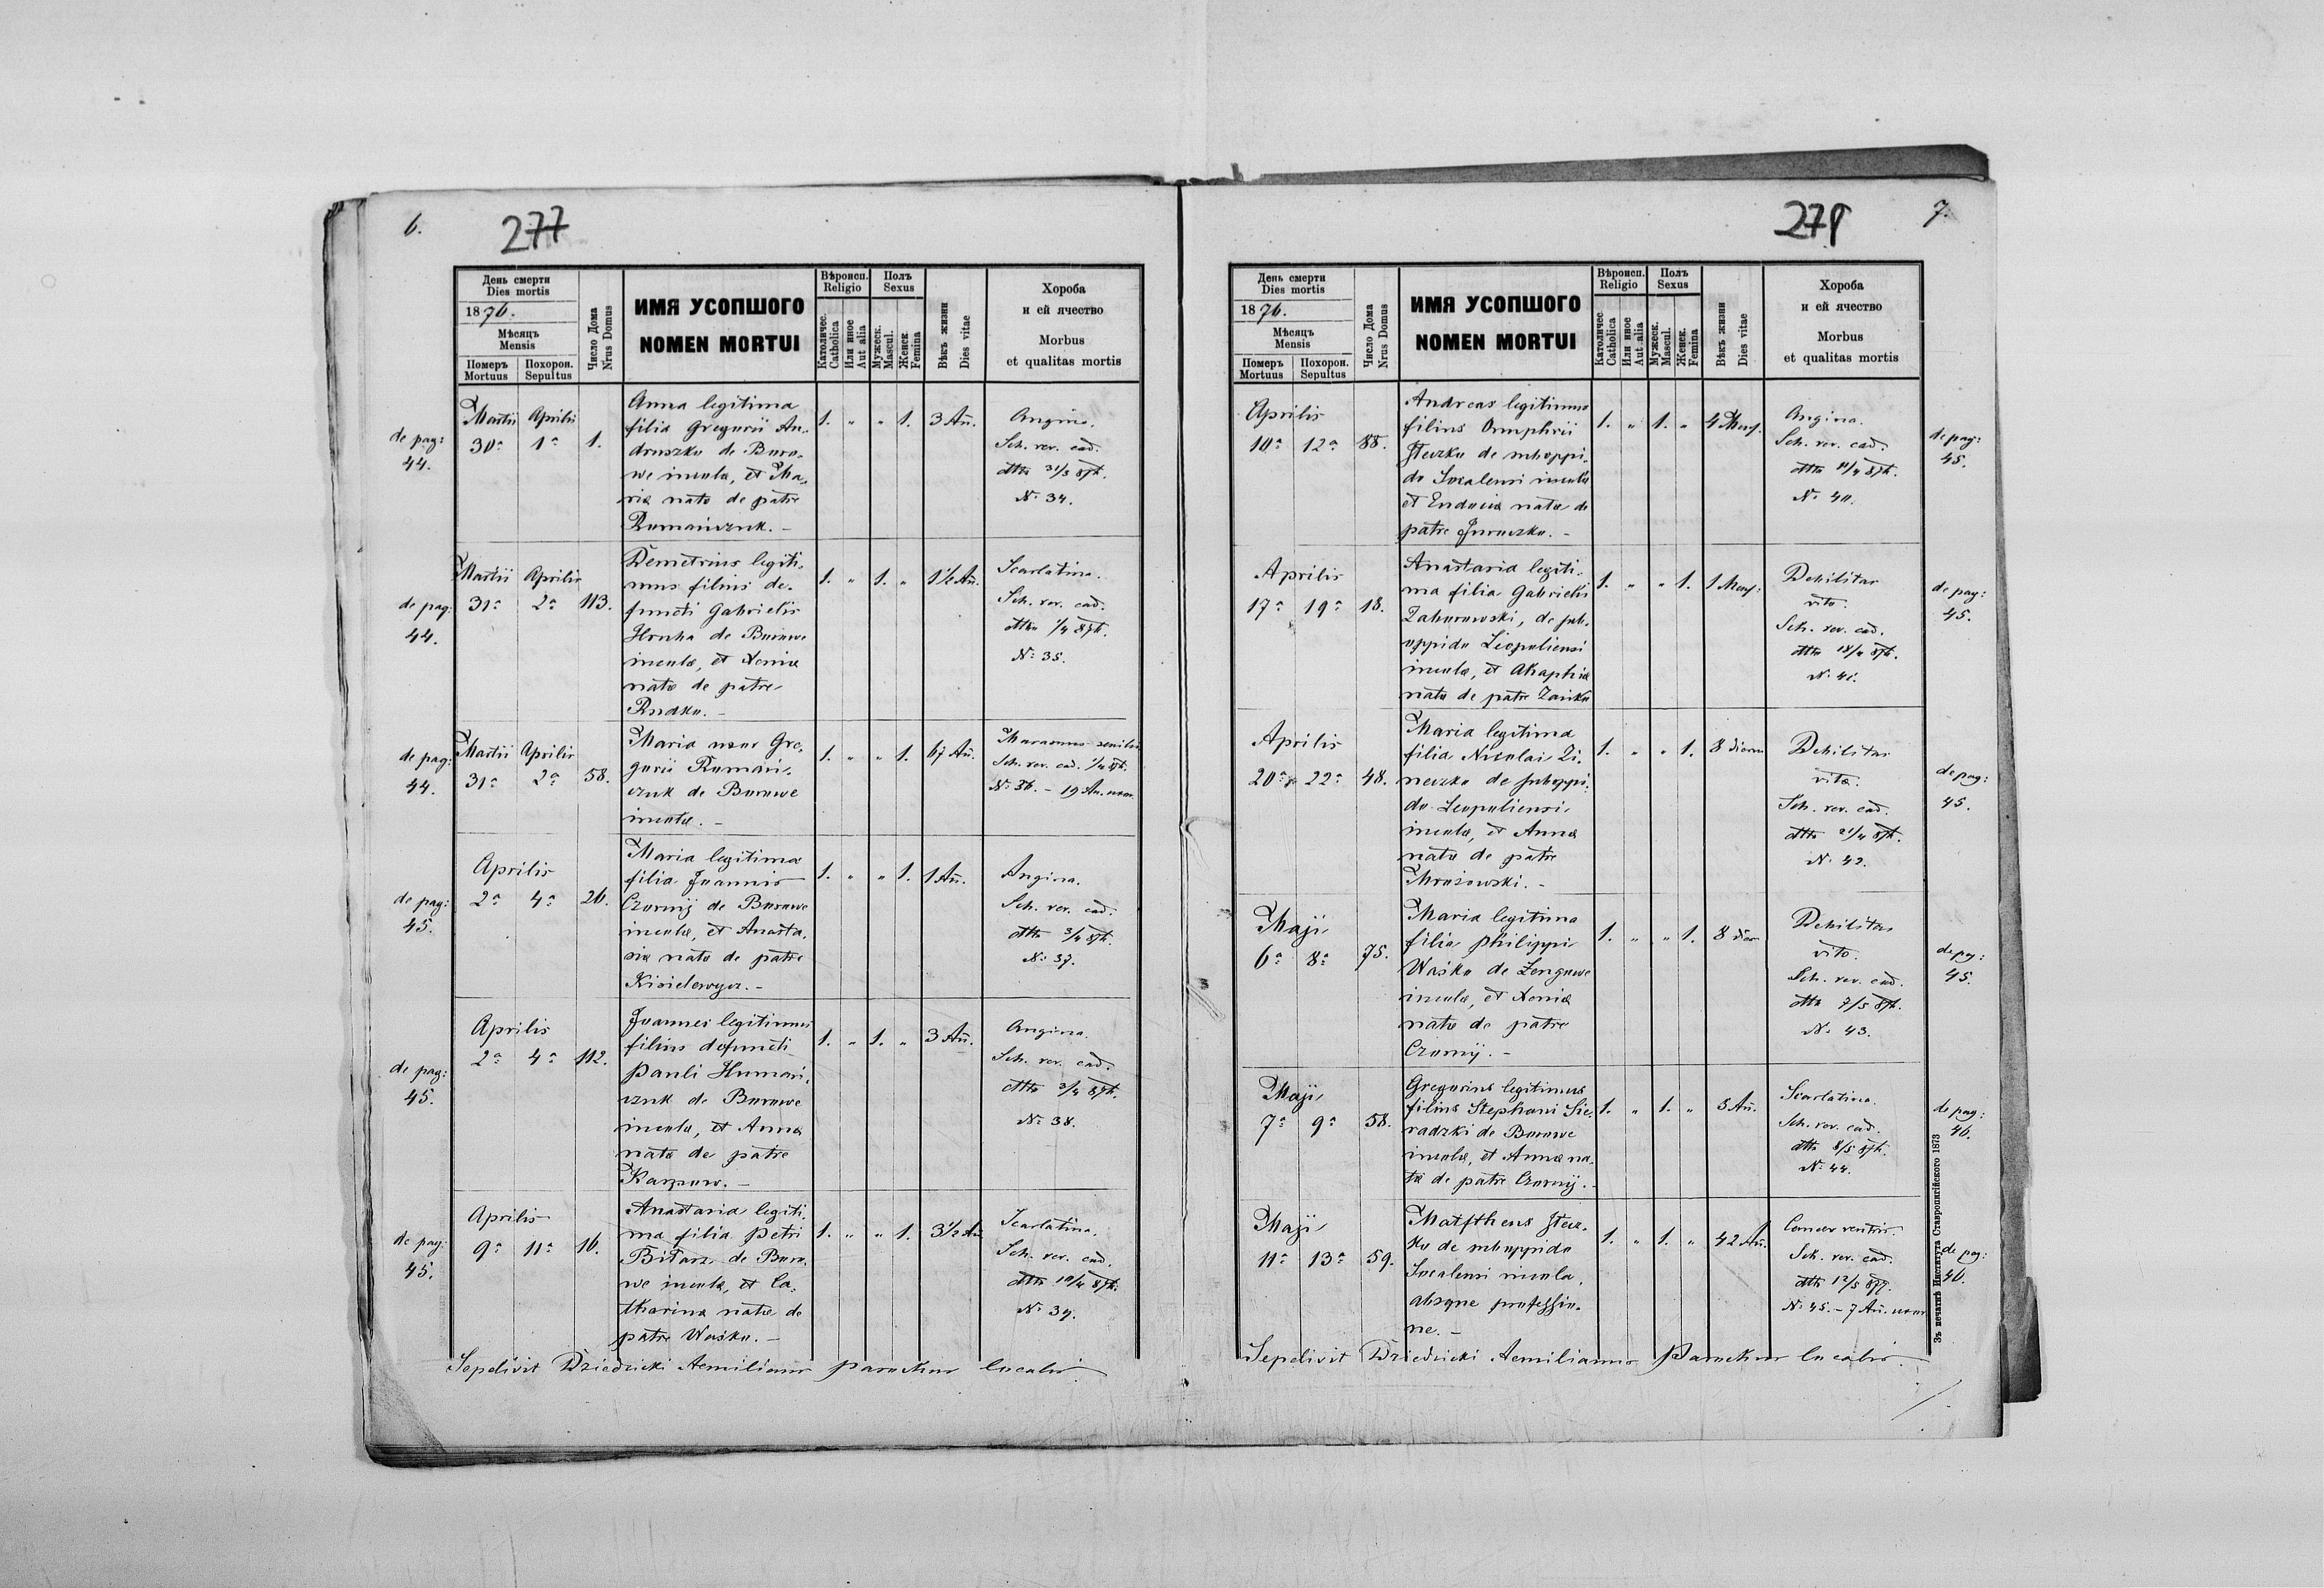 6.
277
День смерти
Dies mortis
1876.
Мѣсяцъ
Mensis
Померъ
Mortuus
Похорон.
Sepultus
Число Дома
Nrus Domus
ИМЯ УСОПШОГО
NOMEN MORTUI
Вѣроисп.
Religio
Католичес.
Catholica
Или иное
Aut alia
Полъ
Sexus
Мужеск.
Mascul.
Женск.
Femina
Вѣкъ жизни
Dies vitae
Хороба
и ей ячество
Morbus
et qualitas mortis
de pag: 44.
Martii 30a Aprilis 1a 1.
Anna legitima
filia Gregorii An-
druszko de Buro-
we incolæ, et Ma-
riæ natæ de patre
Romańczuk. –
1. " " 1. 3 Añ.
Angina.
Sch. rev. cad.
dtto 31/3 876.
No 34.
de pag: 44.
Martii 31a Aprilis 2a 113.
Demetrius legiti-
mus filius de-
functi Gabrielis
Hruha de Burowe
incolæ, et Xeniæ
natæ de patre
Rudko. –
1. " 1. " 1½ Añ.
Scarlatina.
Sch. rev. cad.
dtto 1/4 876.
No 35.
de pag: 44.
Martii 31a Aprilis 2a 58.
Maria uxor Gre-
gorii Romań-
czuk de Burowe
incolæ. –
1. " " 1. 67 Añ.
Marasmus senilis
Sch. rev. cad. 1/4 876.
No 36. – 19 An. uxor.
de pag: 45.
Aprilis 2a 4a 26.
Maria legitima
filia Joannis
Czornij de Burowe
incolæ, et Anasta-
siæ natæ de patre
Kisielewycz. –
1. " " 1. 1 Añ.
Angina.
Sch. rev. cad.
dtto 3/4 876.
No 37.
de pag: 45.
Aprilis 2a 4a 112.
Joannes legitimus
filius defuncti
Pauli Human-
czuk de Burowe
incolæ, et Annæ
natæ de patre
Karpow. –
1. " 1. " 3 Añ.
Angina.
Sch. rev. cad.
dtto 3/4 876.
No 38.
de pag: 45.
Aprilis 9a 11a 16.
Anastasia legiti-
ma filia Petri
Bitarz de Buro-
we incolæ, et Ca-
tharinæ natæ de
patre Waśko. –
1. " " 1. 3½ Añ.
Scarlatina.
Sch. rev. cad.
dtto 10/4 876.
No 39.
Sepelivit Dziedzicki Aemilianus parochus localis.
278
7.
День смерти
Dies mortis
1876.
Мѣсяцъ
Mensis
Померъ
Mortuus
Похорон.
Sepultus
Число Дома
Nrus Domus
ИМЯ УСОПШОГО
NOMEN MORTUI
Вѣроисп.
Religio
Католичес
Catholica
Или иное
Aut alia
Полъ
Sexus
Мужеск.
Mascul.
Женск.
Femina
Вѣкъ жизни
Dies vitae
Хороба
и ей ячество
Morbus
et qualitas mortis
Aprilis 10a 12a 88.
Andreas legitimus
filius Onuphrii
Steczko de suboppi-
do Socalensi incolæ
et Eudociæ natæ de
patre Juraszko. –
1. " 1. " 4 Mens.
Angina.
Sch. rev. cad.
dtto 11/4 876.
No 40.
de pag: 45.
Aprilis 17a 19a 18.
Anastasia legiti-
ma filia Gabrielis
Zaborowski, de sub-
oppido Leopoliensi
incolæ, et Ahaphiæ
natæ de patre Zańko
1. " " 1. 1 Mens.
Debilitas
vitæ.
Sch. rev. cad.
dtto 18/4 876.
No 41.
de pag: 45.
Aprilis 20a 22a 48.
Maria legitima
filia Nicolai Zi-
neczko de suboppi-
do Leopoliensi
incolæ, et Annæ
natæ de patre
Mrozowski. –
1. " " 1. 8 dierum
Debilitas
vitæ.
Sch. rev. cad.
dtto 21/4 876.
No 42.
de pag: 45.
Maji 6a 8a 75.
Maria legitima
filia Philippi
Waśko de Zengowe
incolæ, et Xeniæ
natæ de patre
Czornij. –
1. " " 1. 8 dier
Debilitas
vitæ.
Sch. rev. cad.
dtto 7/5 876.
No 43.
de pag: 45.
Maji 7a 9a 58.
Gregorius legitimus
filius Stephani Sie-
radzki de Burowe
incolæ, et Annæ na-
tæ de patre Czornij. –
1. " 1. " 3 Añ.
Scarlatina.
Sch. rev. cad.
dtto 8/5 876.
No 44.
de pag: 46.
Maji 11a 13a 59.
Matftheus Stecz-
ko de suboppido
Socalensi incola,
absque professio-
ne. –
1. " 1. " 42 Añ.
Cancer ventris.
Sch. rev. cad.
dtto 12/5 876.
No 45. – 7 Añ. uxor
de pag: 46.
Sepelivit Dziedzicki Aemilianus Parochus localis.
Зъ печатнѣ Института Ставропигійского 1873